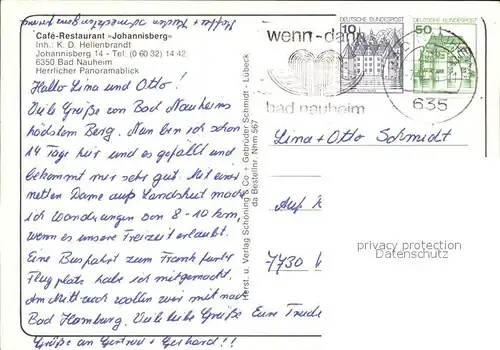 Café-Restaurant »Johannisberg«
Inh.: K. D. Hellenbrandt
Johannisberg 14 - Tel. (0 60 32) 14 42
6350 Bad Nauheim
Herrlicher Panoramablick
Hallo Lina und Otto!
Viele Grüße von Bad Nauheims
höchstem Berg. Nun bin ich schon
14 Tage hier und es gefällt und
bekommt mir sehr gut. Mit einer
netten Dame aus Landshut mache
ich Wanderungen von 8-10 km,
wenn es unsere Freizeit erlaubt.
Eine Busfahrt zum Frankfurter
Flugplatz habe ich mitgemacht.
Am Mittwoch wollen wir mit nach
Bad Homburg. Viele liebe Grüße Eure Trude
Grüße an Gertrud + Gerhard!!
Herst. u. Verlag Schöning & Co + Gebrüder Schmidt - Lübeck
da Bestellnr. Nhm 567
wenn-dann
bad nauheim
10
DEUTSCHE BUNDESPOST
50
DEUTSCHE BUNDESPOST
635
Lina + Otto Schmidt
Auf
7730
privacy protection
Datenschutz